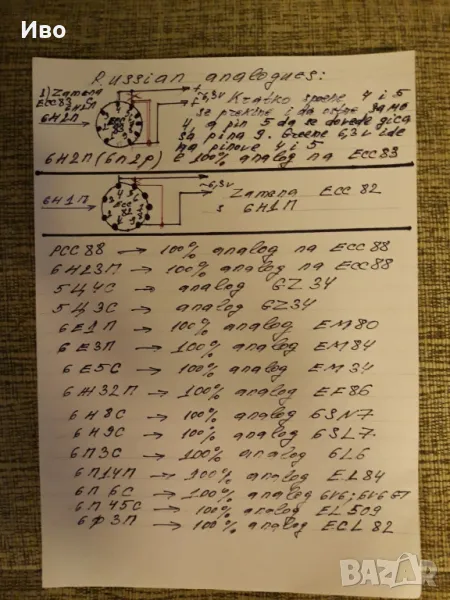 Иво
Russian analogues:
1) Zamena
ECC83
6Н2П
6Н2П →
ECC
83
~6,3v
f
Kratko spoene 4 i 5
se prekine i da ostne samo
4, a pin 5 da se dovede gica
za pina 9. Greene 6,3v ide
na pinove 4 i 5
6Н2П (6n2p) e 100% analog na ECC83
6Н1П →
ECC
82
~6,3v
Zamena ECC 82
s 6Н1П
PCC88 → 100% analog na ECC88
6Н23П → 100% analog na ECC88
5Ц4С → analog GZ34
5Ц3С → analog GZ34
6Е1П → 100% analog EM80
6Е3П → 100% analog EM84
6Е5С → 100% analog EM34
6Ж32П → 100% analog EF86
6Н8С → 100% analog 6SN7
6Н9С → 100% analog 6SL7.
6П3С → 100% analog 6L6
6П14П → 100% analog EL84
6П6С → 100% analog 6V6; 6V6GT
6П45С → 100% analog EL509
6Ф3П → 100% analog ECL 82
bazar